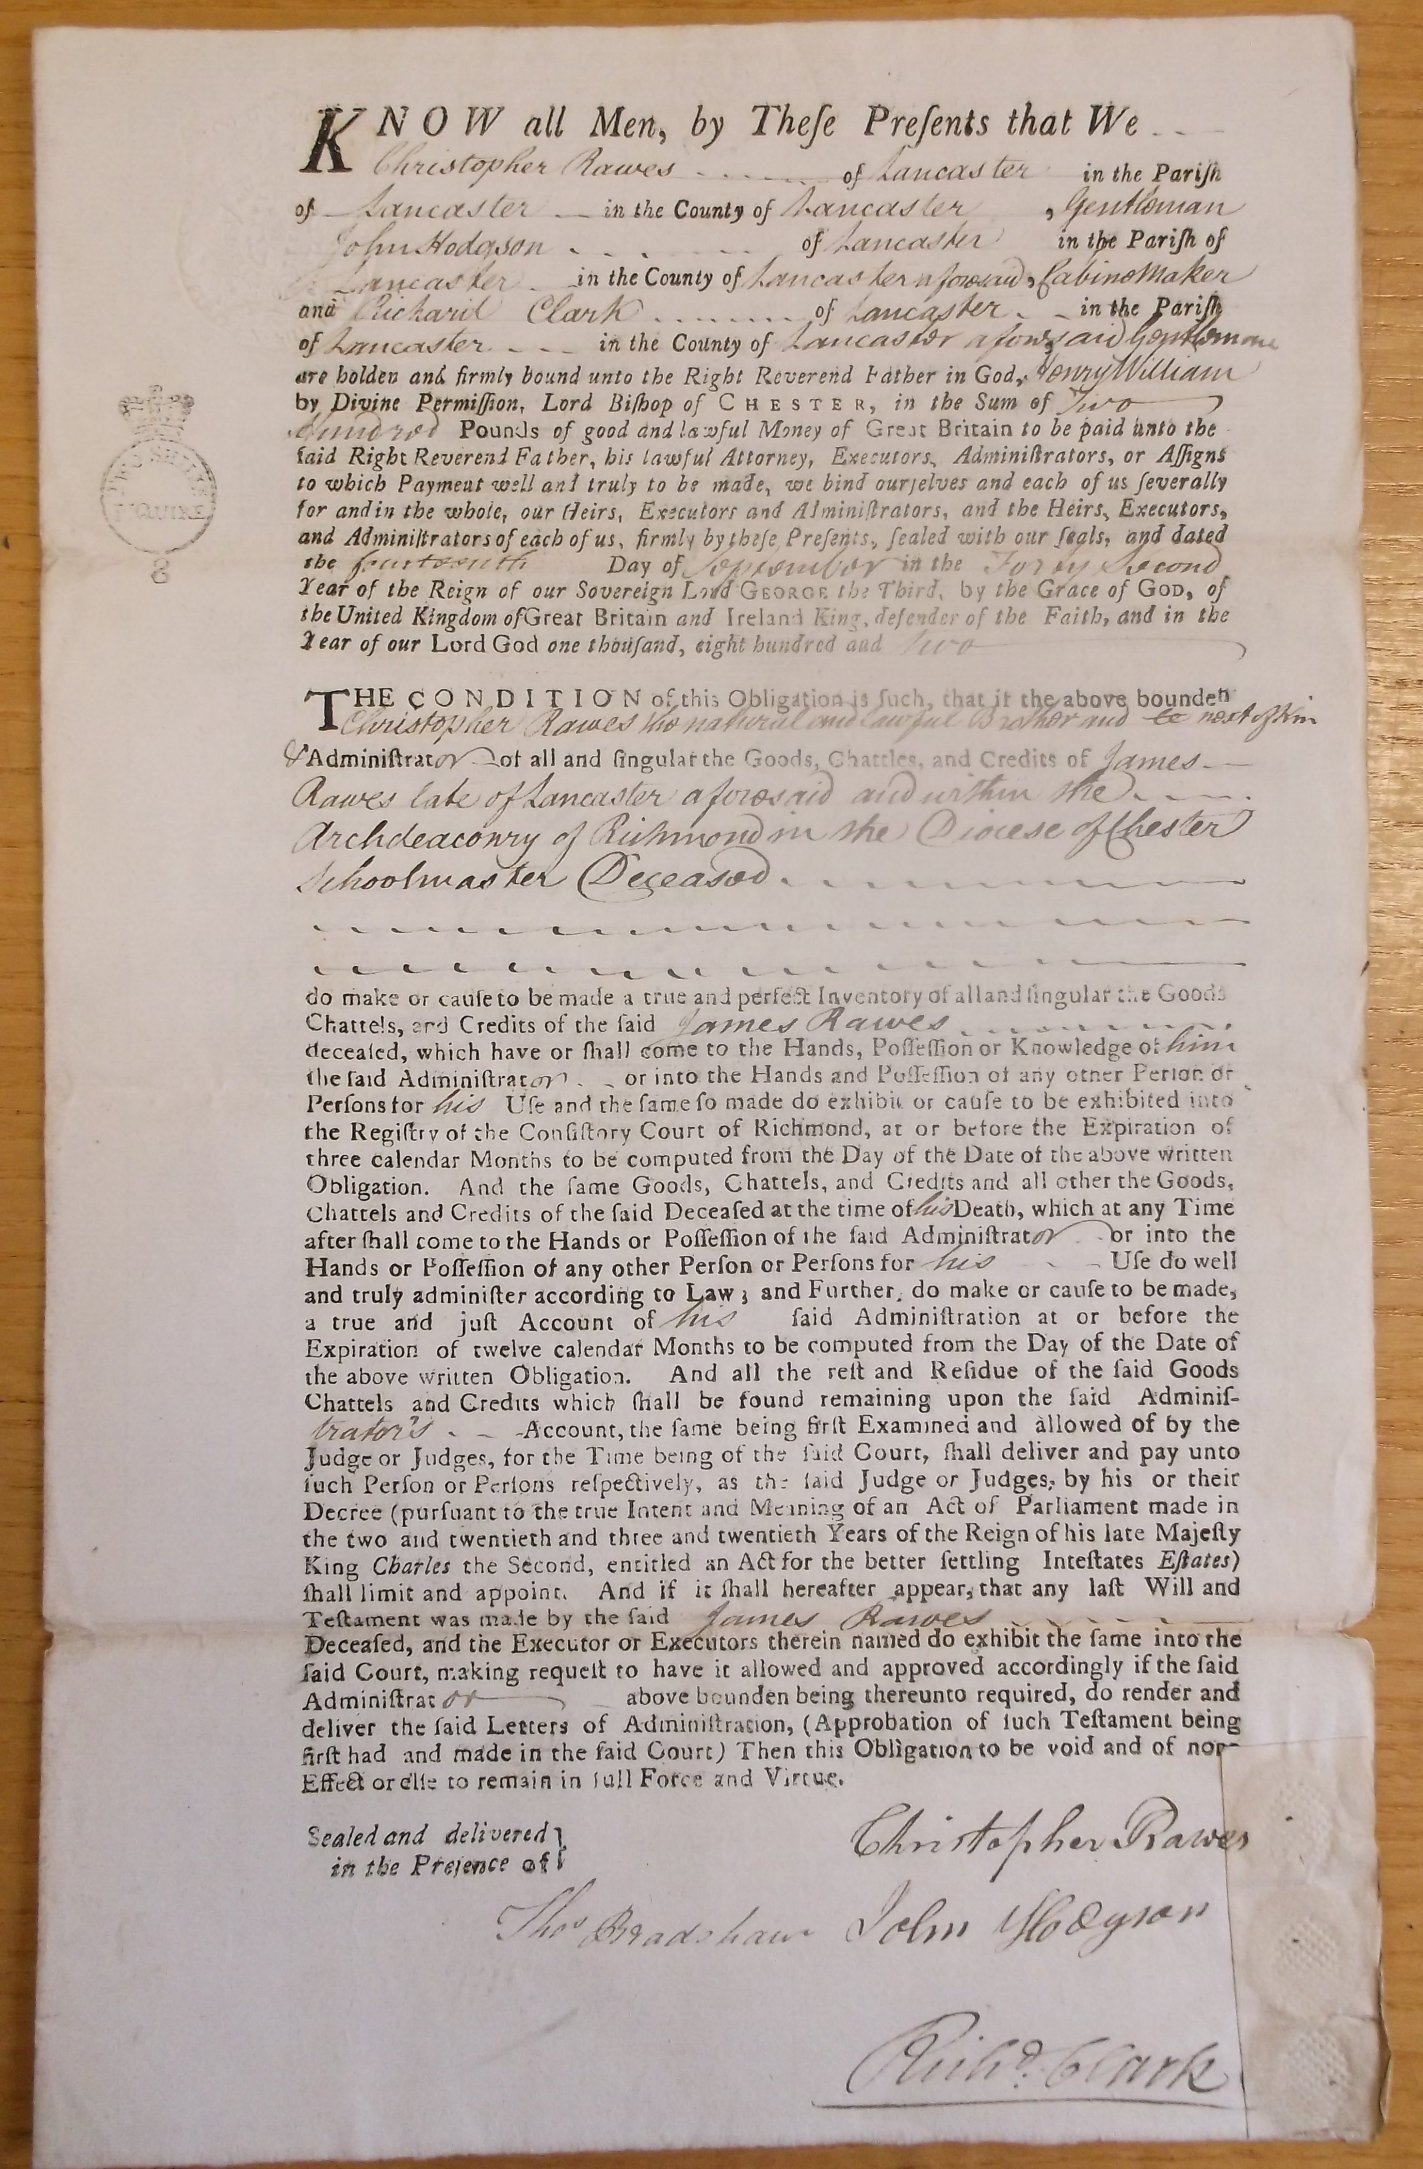 KNOW all Men, by Theſe Preſents that We
Christopher Rawes of Lancaster in the Pariſh
of Lancaster in the County of Lancaster , Gentleman
John Hodgson of Lancaster in the Pariſh of
Lancaster in the County of Lancaster aforesaid, Cabinet Maker
and Richard Clark of Lancaster in the Pariſh
of Lancaster in the County of Lancaster aforesaid Gentleman
are holden and firmly bound unto the Right Reverend Father in God, Henry William
by Divine Permiſſion, Lord Biſhop of CHESTER, in the Sum of Two
Hundred Pounds of good and lawful Money of Great Britain to be paid unto the
ſaid Right Reverend Father, his lawful Attorney, Executors, Adminiſtrators, or Aſſigns
to which Payment well and truly to be made, we bind ourſelves and each of us ſeverally
for and in the whole, our Heirs, Executors and Adminiſtrators, and the Heirs, Executors,
and Adminiſtrators of each of us, firmly by theſe Preſents, ſealed with our ſeals, and dated
the fourteenth Day of September in the Forty Second
Year of the Reign of our Sovereign Lord GEORGE the Third, by the Grace of GOD, of
the United Kingdom of Great Britain and Ireland King, defender of the Faith, and in the
Year of our Lord God one thouſand, eight hundred and two
THE CONDITION of this Obligation is ſuch, that if the above bounden
Christopher Rawes the natural and lawful Brother and next of kin
& Adminiſtrator of all and ſingular the Goods, Chattles, and Credits of James
Rawes late of Lancaster aforesaid and within the
Archdeaconry of Richmond in the Diocese of Chester
Schoolmaster Deceased
do make or cauſe to be made a true and perfect Inventory of all and ſingular the Goods
Chattels, and Credits of the ſaid James Rawes
deceaſed, which have or ſhall come to the Hands, Poſſeſſion or Knowledge of him
the ſaid Adminiſtrator or into the Hands and Poſſeſſion of any other Perſon or
Perſons for his Uſe and the ſame ſo made do exhibit or cauſe to be exhibited into
the Regiſtry of the Conſiſtory Court of Richmond, at or before the Expiration of
three calendar Months to be computed from the Day of the Date of the above written
Obligation. And the ſame Goods, Chattels, and Credits and all other the Goods,
Chattels and Credits of the ſaid Deceaſed at the time of his Death, which at any Time
after ſhall come to the Hands or Poſſeſſion of the ſaid Adminiſtrator or into the
Hands or Poſſeſſion of any other Perſon or Perſons for his Uſe do well
and truly adminiſter according to Law; and Further, do make or cauſe to be made,
a true and juſt Account of his ſaid Adminiſtration at or before the
Expiration of twelve calendar Months to be computed from the Day of the Date of
the above written Obligation. And all the reſt and Reſidue of the ſaid Goods
Chattels and Credits which ſhall be found remaining upon the ſaid Adminiſ-
trator's Account, the ſame being firſt Examined and allowed of by the
Judge or Judges, for the Time being of the ſaid Court, ſhall deliver and pay unto
ſuch Perſon or Perſons reſpectively, as the ſaid Judge or Judges, by his or their
Decree (purſuant to the true Intent and Meaning of an Act of Parliament made in
the two and twentieth and three and twentieth Years of the Reign of his late Majeſty
King Charles the Second, entitled an Act for the better ſettling Inteſtates Eſtates)
ſhall limit and appoint. And if it ſhall hereafter appear, that any laſt Will and
Teſtament was made by the ſaid James Rawes
Deceaſed, and the Executor or Executors therein named do exhibit the ſame into the
ſaid Court, making requeſt to have it allowed and approved accordingly if the ſaid
Adminiſtrator above bounden being thereunto required, do render and
deliver the ſaid Letters of Adminiſtration, (Approbation of ſuch Teſtament being
firſt had and made in the ſaid Court) Then this Obligation to be void and of none
Effect or elſe to remain in full Force and Virtue.
Sealed and delivered
in the Preſence of
Christopher Rawes
Thos Bradshaw John Hodgson
Richd. Clark